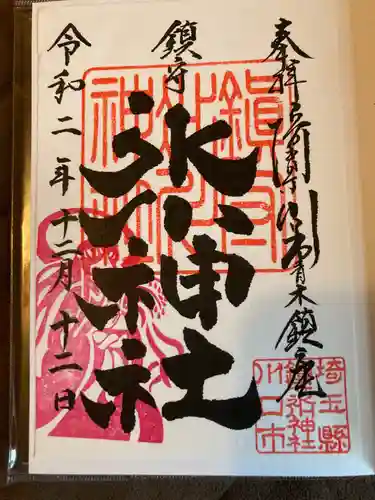 奉拝
青木鎮座
鎮守
氷川神社
令和二年十二月十二日
鎮守
氷川
神社
埼玉縣
鎮守氷川神社
川口市